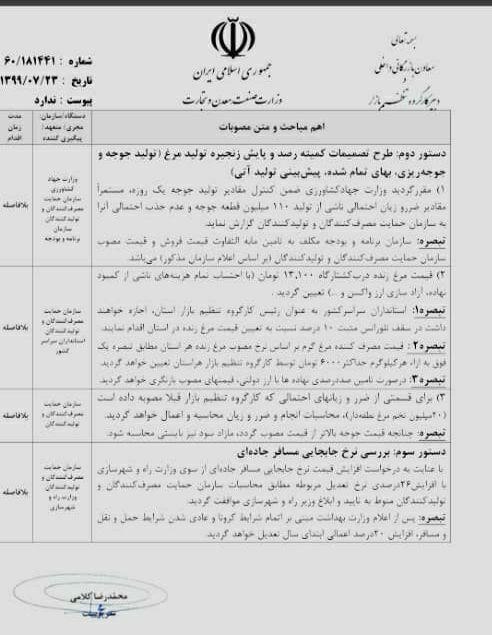 بسمه تعالی
معاون بازرگانی داخلی
و
دبیر کارگروه تنظیم بازار
جمهوری اسلامی ایران
وزارت صنعت، معدن و تجارت
شماره : ۶۰/۱۸۱۴۴۱
تاریخ : ۱۳۹۹/۰۷/۲۳
پیوست : ندارد
اهم مباحث و متن مصوبات
دستگاه/سازمان:
مجری/متعهد/
پیگیری کننده
مدت
زمان
اقدام
دستور دوم: طرح تصمیمات کمیته رصد و پایش زنجیره تولید مرغ (تولید جوجه و
جوجه‌ریزی، بهای تمام شده، پیش‌بینی تولید آتی)
۱) مقرر گردید وزارت جهادکشاورزی ضمن کنترل مقادیر تولید جوجه یک روزه، مستمراً
مقادیر ضررو زیان احتمالی ناشی از تولید ۱۱۰ میلیون قطعه جوجه و عدم جذب احتمالی آنرا
به سازمان حمایت مصرف‌کنندگان و تولیدکنندگان گزارش نماید.
تبصره: سازمان برنامه و بودجه مکلف به تامین مابه التفاوت قیمت فروش و قیمت مصوب
سازمان حمایت مصرف‌کنندگان و تولیدکنندگان (بر اساس اعلام سازمان مذکور) می‌باشد.
وزارت جهاد
کشاورزی
سازمان حمایت
مصرف‌کنندگان و
تولیدکنندگان
سازمان
برنامه و بودجه
بلافاصله
۲) قیمت مرغ زنده درب‌کشتارگاه ۱۳,۱۰۰ تومان (با احتساب تمام هزینه‌های ناشی از کمبود
نهاده، آزاد سازی ارز واکسن و ...) تعیین گردید.
تبصره۱: استانداران سراسرکشور به عنوان رئیس کارگروه تنظیم بازار استان، اجازه خواهند
داشت در سقف تلورانس مثبت ۱۰ درصد نسبت به تعیین قیمت مرغ زنده در استان اقدام نمایند.
تبصره۲: قیمت مصرف کننده مرغ گرم بر اساس نرخ مصوب مرغ زنده هر استان مطابق تبصره یک
فوق به ازاء هرکیلوگرم حداکثر۶۰۰۰ تومان توسط کارگروه تنظیم بازار هراستان تعیین خواهد گردید.
تبصره۳: درصورت تامین صددرصدی نهاده ها با ارز دولتی، قیمتهای مصوب بازنگری خواهد گردید.
سازمان حمایت
مصرف‌کنندگان و
تولیدکنندگان
استانداران سراسر
کشور
بلافاصله
۳) برای قسمتی از ضرر و زیانهای احتمالی که کارگروه تنظیم بازار قبلا مصوبه داده است
(۲۰میلیون تخم مرغ نطفه‌دار)، محاسبات انجام و ضرر و زیان محاسبه و اعمال خواهد گردید.
تبصره: چنانچه قیمت جوجه بالاتر از قیمت مصوب گردد، مازاد سود نیز بایستی محاسبه شود.
سازمان حمایت
مصرف‌کنندگان و
تولیدکنندگان
بلافاصله
دستور سوم: بررسی نرخ جابجایی مسافر جاده‌ای
با عنایت به درخواست افزایش قیمت نرخ جابجایی مسافر جاده‌ای از سوی وزارت راه و شهرسازی
با افزایش۲۶درصدی نرخ تعدیل مربوطه مطابق محاسبات سازمان حمایت مصرف‌کنندگان و
تولیدکنندگان منوط به تایید و ابلاغ وزیر راه و شهرسازی موافقت گردید.
تبصره: پس از اعلام وزارت بهداشت مبنی بر اتمام شرایط کرونا و عادی شدن شرایط حمل و نقل
و مسافر، افزایش ۲۰درصد اعمالی ابتدای سال تعدیل خواهد گردید.
سازمان حمایت
مصرف‌کنندگان و
تولیدکنندگان
وزارت راه و
شهرسازی
بلافاصله
محمدرضا کلامی